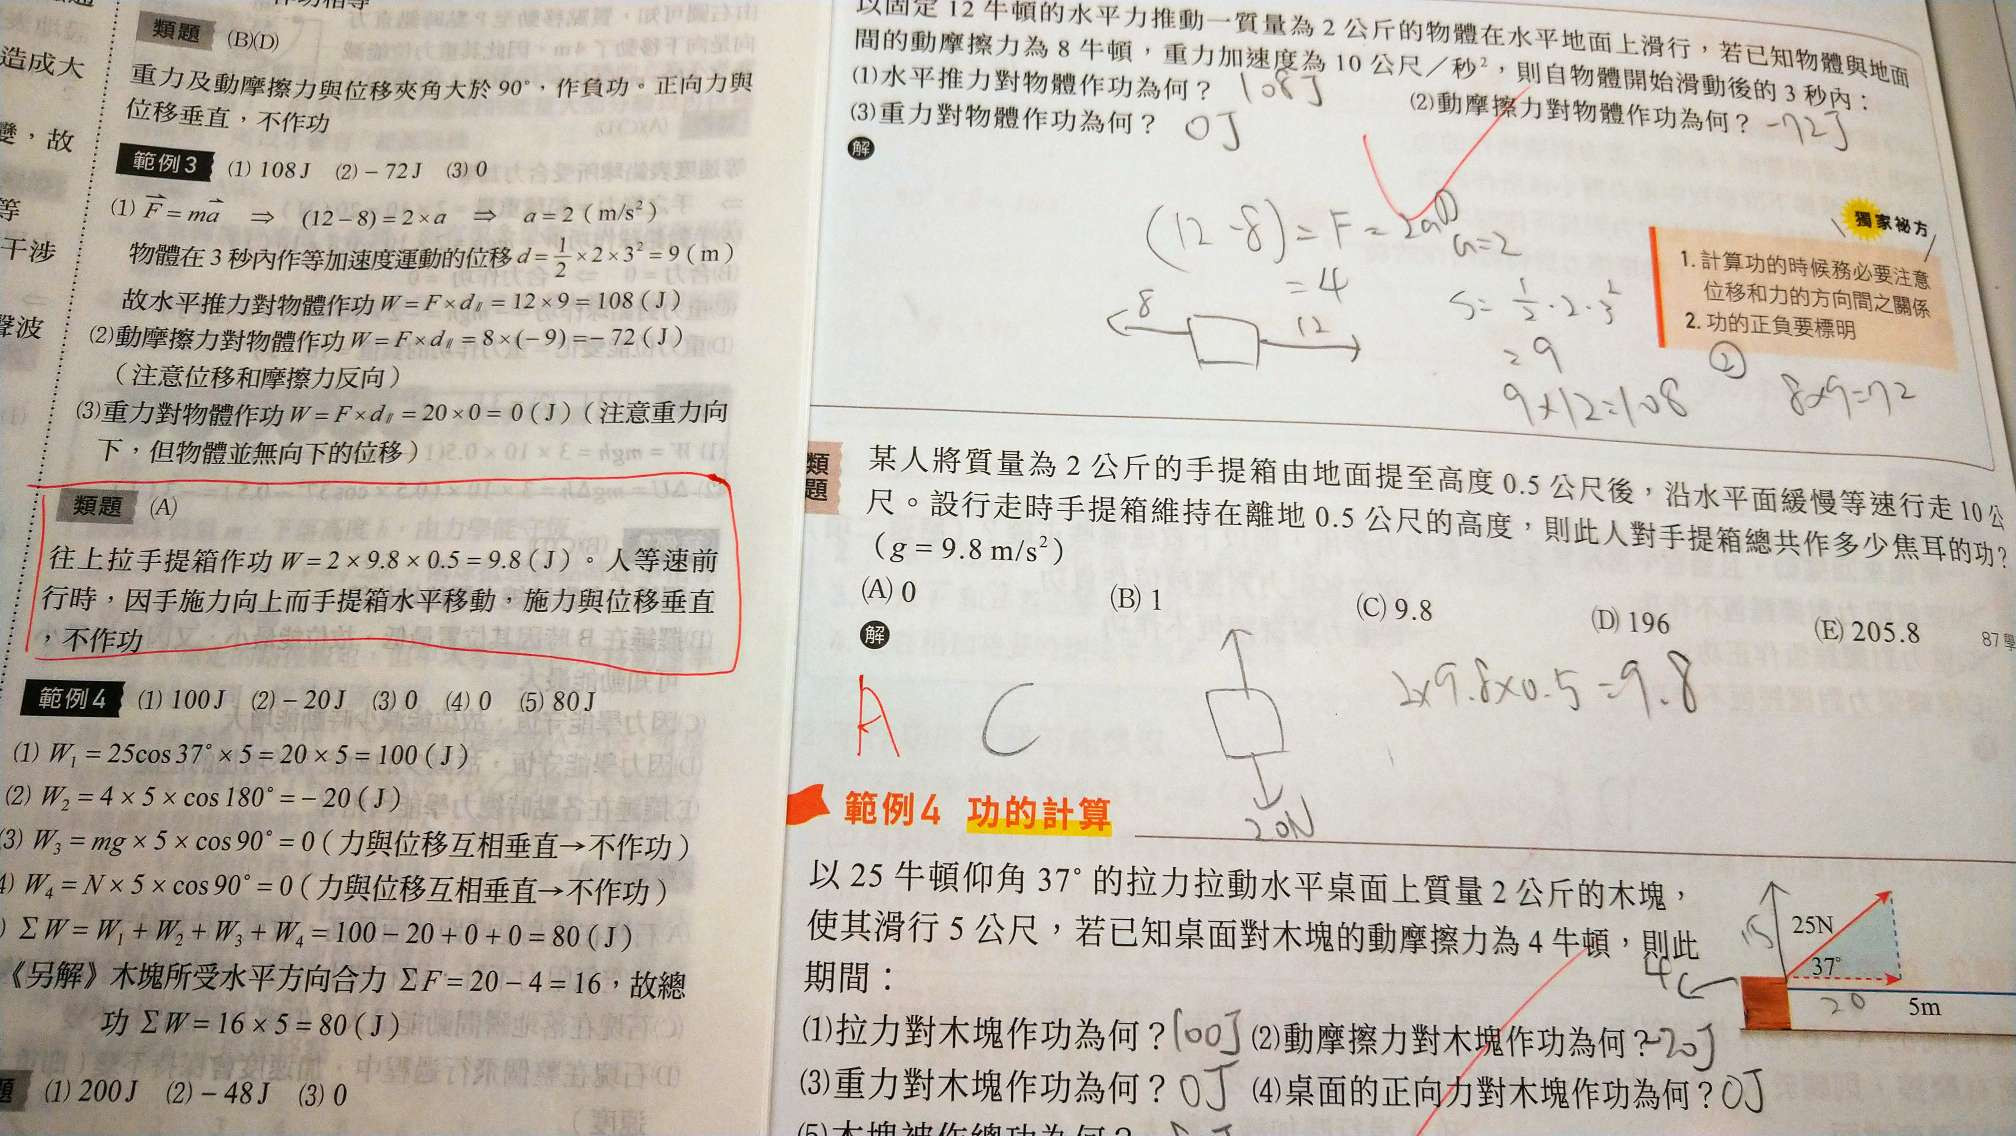 造成大
變，故
等
干涉
聲波
類題 (B)(D)
重力及動摩擦力與位移夾角大於90°，作負功。正向力與
位移垂直，不作功
範例3 (1) 108 J (2) – 72 J (3) 0
(1) F = ma ⇒ (12 – 8) = 2 × a ⇒ a = 2 ( m/s² )
物體在 3 秒內作等加速度運動的位移 d = 1/2 × 2 × 3² = 9 ( m )
故水平推力對物體作功 W = F × d∥ = 12 × 9 = 108 ( J )
(2)動摩擦力對物體作功 W = F × d∥ = 8 × (– 9) = – 72 ( J )
（注意位移和摩擦力反向）
(3)重力對物體作功 W = F × d∥ = 20 × 0 = 0 ( J )（注意重力向
下，但物體並無向下的位移）
類題 (A)
往上拉手提箱作功 W = 2 × 9.8 × 0.5 = 9.8 ( J )。人等速前
行時，因手施力向上而手提箱水平移動，施力與位移垂直
，不作功
範例4 (1) 100 J (2) – 20 J (3) 0 (4) 0 (5) 80 J
(1) W₁ = 25cos 37° × 5 = 20 × 5 = 100 ( J )
(2) W₂ = 4 × 5 × cos 180° = – 20 ( J )
(3) W₃ = mg × 5 × cos 90° = 0（力與位移互相垂直→不作功）
4) W₄ = N × 5 × cos 90° = 0（力與位移互相垂直→不作功）
) ΣW = W₁ + W₂ + W₃ + W₄ = 100 – 20 + 0 + 0 = 80 ( J )
《另解》木塊所受水平方向合力 ΣF = 20 – 4 = 16，故總
功 ΣW = 16 × 5 = 80 ( J )
題 (1) 200 J (2) – 48 J (3) 0
以固定 12 牛頓的水平力推動一質量為 2 公斤的物體在水平地面上滑行，若已知物體與地面
間的動摩擦力為 8 牛頓，重力加速度為 10 公尺／秒²，則自物體開始滑動後的 3 秒內：
(1)水平推力對物體作功為何？ 108J (2)動摩擦力對物體作功為何？ -72J
(3)重力對物體作功為何？ 0J
解
(12-8) = F = 2a ①
a=2
= 4
S = 1/2 · 2 · 3²
= 9
9×12=108
8
12
②
8×9=72
獨家祕方
1. 計算功的時候務必要注意
位移和力的方向間之關係
2. 功的正負要標明
類題
某人將質量為 2 公斤的手提箱由地面提至高度 0.5 公尺後，沿水平面緩慢等速行走 10 公
尺。設行走時手提箱維持在離地 0.5 公尺的高度，則此人對手提箱總共作多少焦耳的功？
（g = 9.8 m/s²）
(A) 0 (B) 1 (C) 9.8 (D) 196 (E) 205.8
87學
解
A C
2×9.8×0.5=9.8
20N
範例4 功的計算
以 25 牛頓仰角 37° 的拉力拉動水平桌面上質量 2 公斤的木塊，
使其滑行 5 公尺，若已知桌面對木塊的動摩擦力為 4 牛頓，則此
期間：
(1)拉力對木塊作功為何？100J (2)動摩擦力對木塊作功為何？-20J
(3)重力對木塊作功為何？ 0J (4)桌面的正向力對木塊作功為何？0J
(5)木塊被作總功為何？
15
25N
37°
4
20
5m